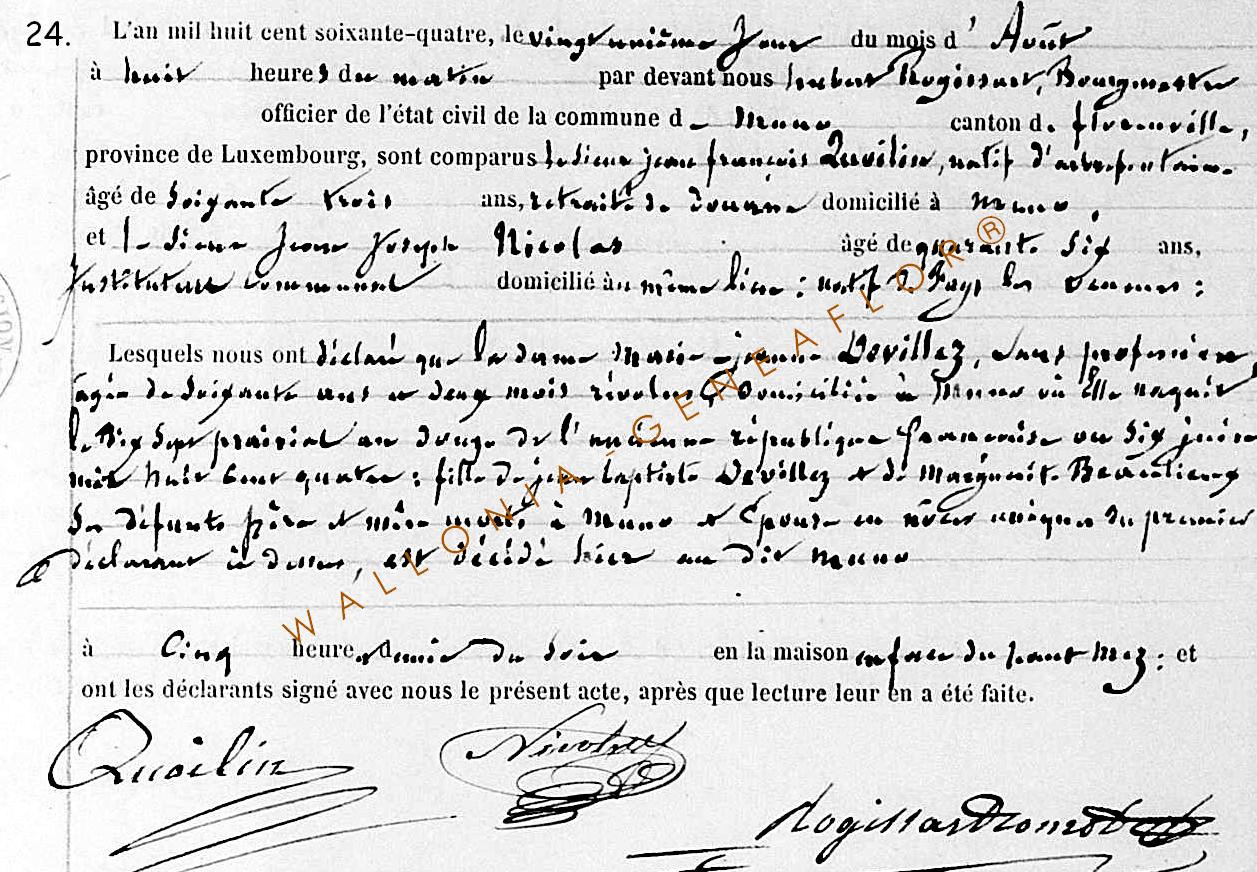 24. L'an mil huit cent soixante-quatre, le vingt unième Jour du mois d' Août
à huit heures du matin par devant nous hubert Rogissart, Bourgmestre
officier de l'état civil de la commune d - Muno canton de florenville,
province de Luxembourg, sont comparus le sieur jean françois Quoilin, natif
âgé de Soixante trois ans, retraité de Douane domicilié à Muno,
et le sieur Jean Joseph Nicolas âgé de quarante Six ans,
Instituteur communal domicilié au même lieu : natif de Fays les veneurs :
Lesquels nous ont déclaré que la dame Marie-jeanne Devillez, sans profession
âgée de Soixante ans et deux mois révolus, Domiciliée à Muno où Elle naquit
le Dix Sept prairial an Douze de l'ancienne république française ou Six juin
mil huit Cent quatre : fille de jean baptiste Devillez et de Marguerite
Ses défunts père et mère morts à Muno et Epouse en nôces uniques du premier
déclarant ci dessus, est décédé hier au dit Muno
à Cinq heures et demie du Soir en la maison en face du haut Mez : et
ont les déclarants signé avec nous le présent acte, après que lecture leur en a été faite.
Quoilin Nicolas
Rogissart
WALLONIA - GENEAFLOR ®